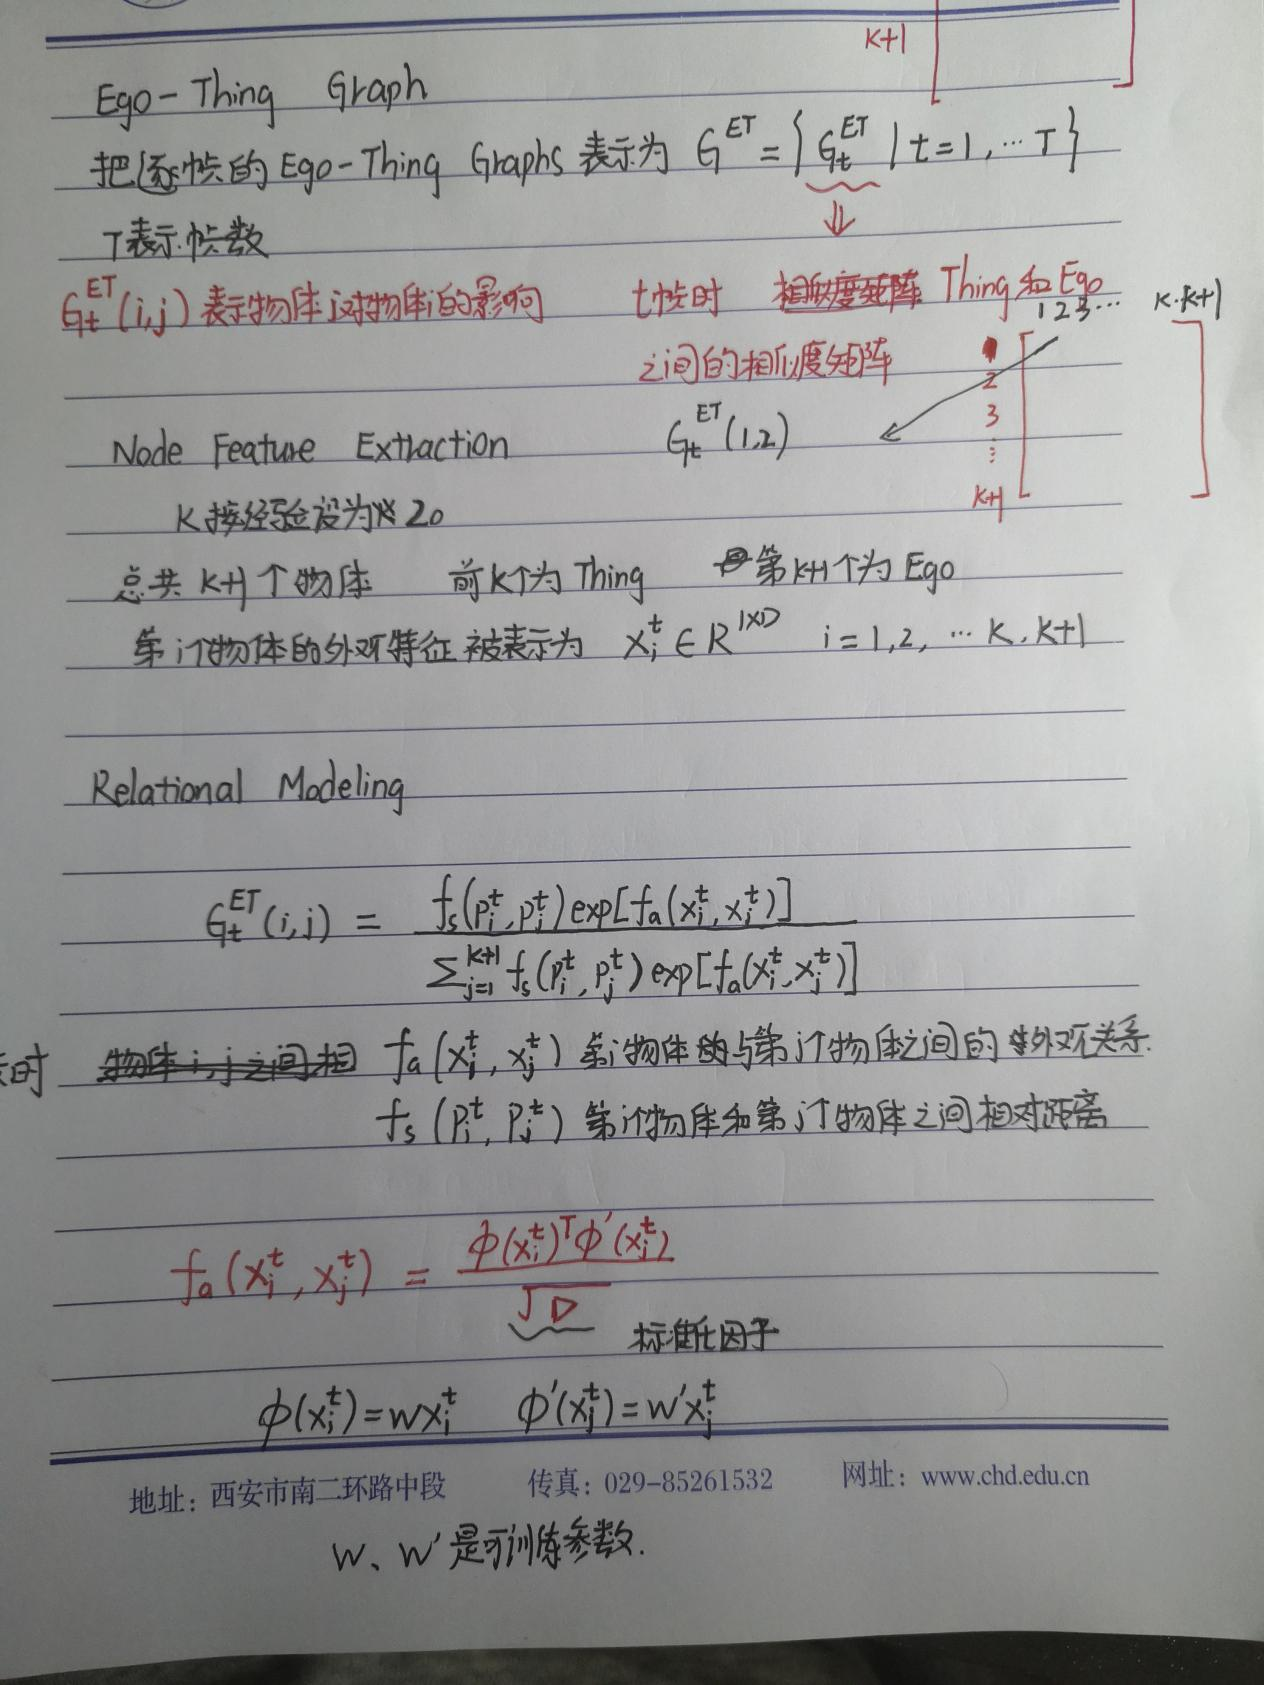 K+1
Ego-Thing Graph
把逐帧的Ego-Thing Graphs表示为 G^{ET} = {G_t^{ET} | t=1, ··· T}
T表示帧数
G_t^{ET}(i,j)表示物体j对物体i的影响 t帧时 相似度矩阵 Thing和Ego
1 2 3 ··· K.K+1
之间的相似度矩阵
2
3
⋮
K+1
Node Feature Extraction G_t^{ET}(1,2)
K按经验设为 20
总共K+1个物体 前K个为Thing 第K+1个为Ego
第i个物体的外观特征被表示为 x_i^t ∈ R^{1×D} i=1,2, ··· K.K+1
Relational Modeling
G_t^{ET}(i,j) = \frac{f_s(p_i^t, p_j^t) exp[f_a(x_i^t, x_j^t)]}{∑_{j=1}^{K+1} f_s(p_i^t, p_j^t) exp[f_a(x_i^t, x_j^t)]}
时 物体i,j之间相 f_a(x_i^t, x_j^t) 第i物体与第j个物体之间的外观关系.
f_s(p_i^t, p_j^t) 第i个物体和第j个物体之间相对距离
f_a(x_i^t, x_j^t) = \frac{ϕ(x_i^t)^T ϕ'(x_j^t)}{√D}
标准化因子
ϕ(x_i^t)=wx_i^t ϕ'(x_j^t)=w'x_j^t
地址：西安市南二环路中段 传真：029-85261532 网址：www.chd.edu.cn
W、W'是可训练参数.